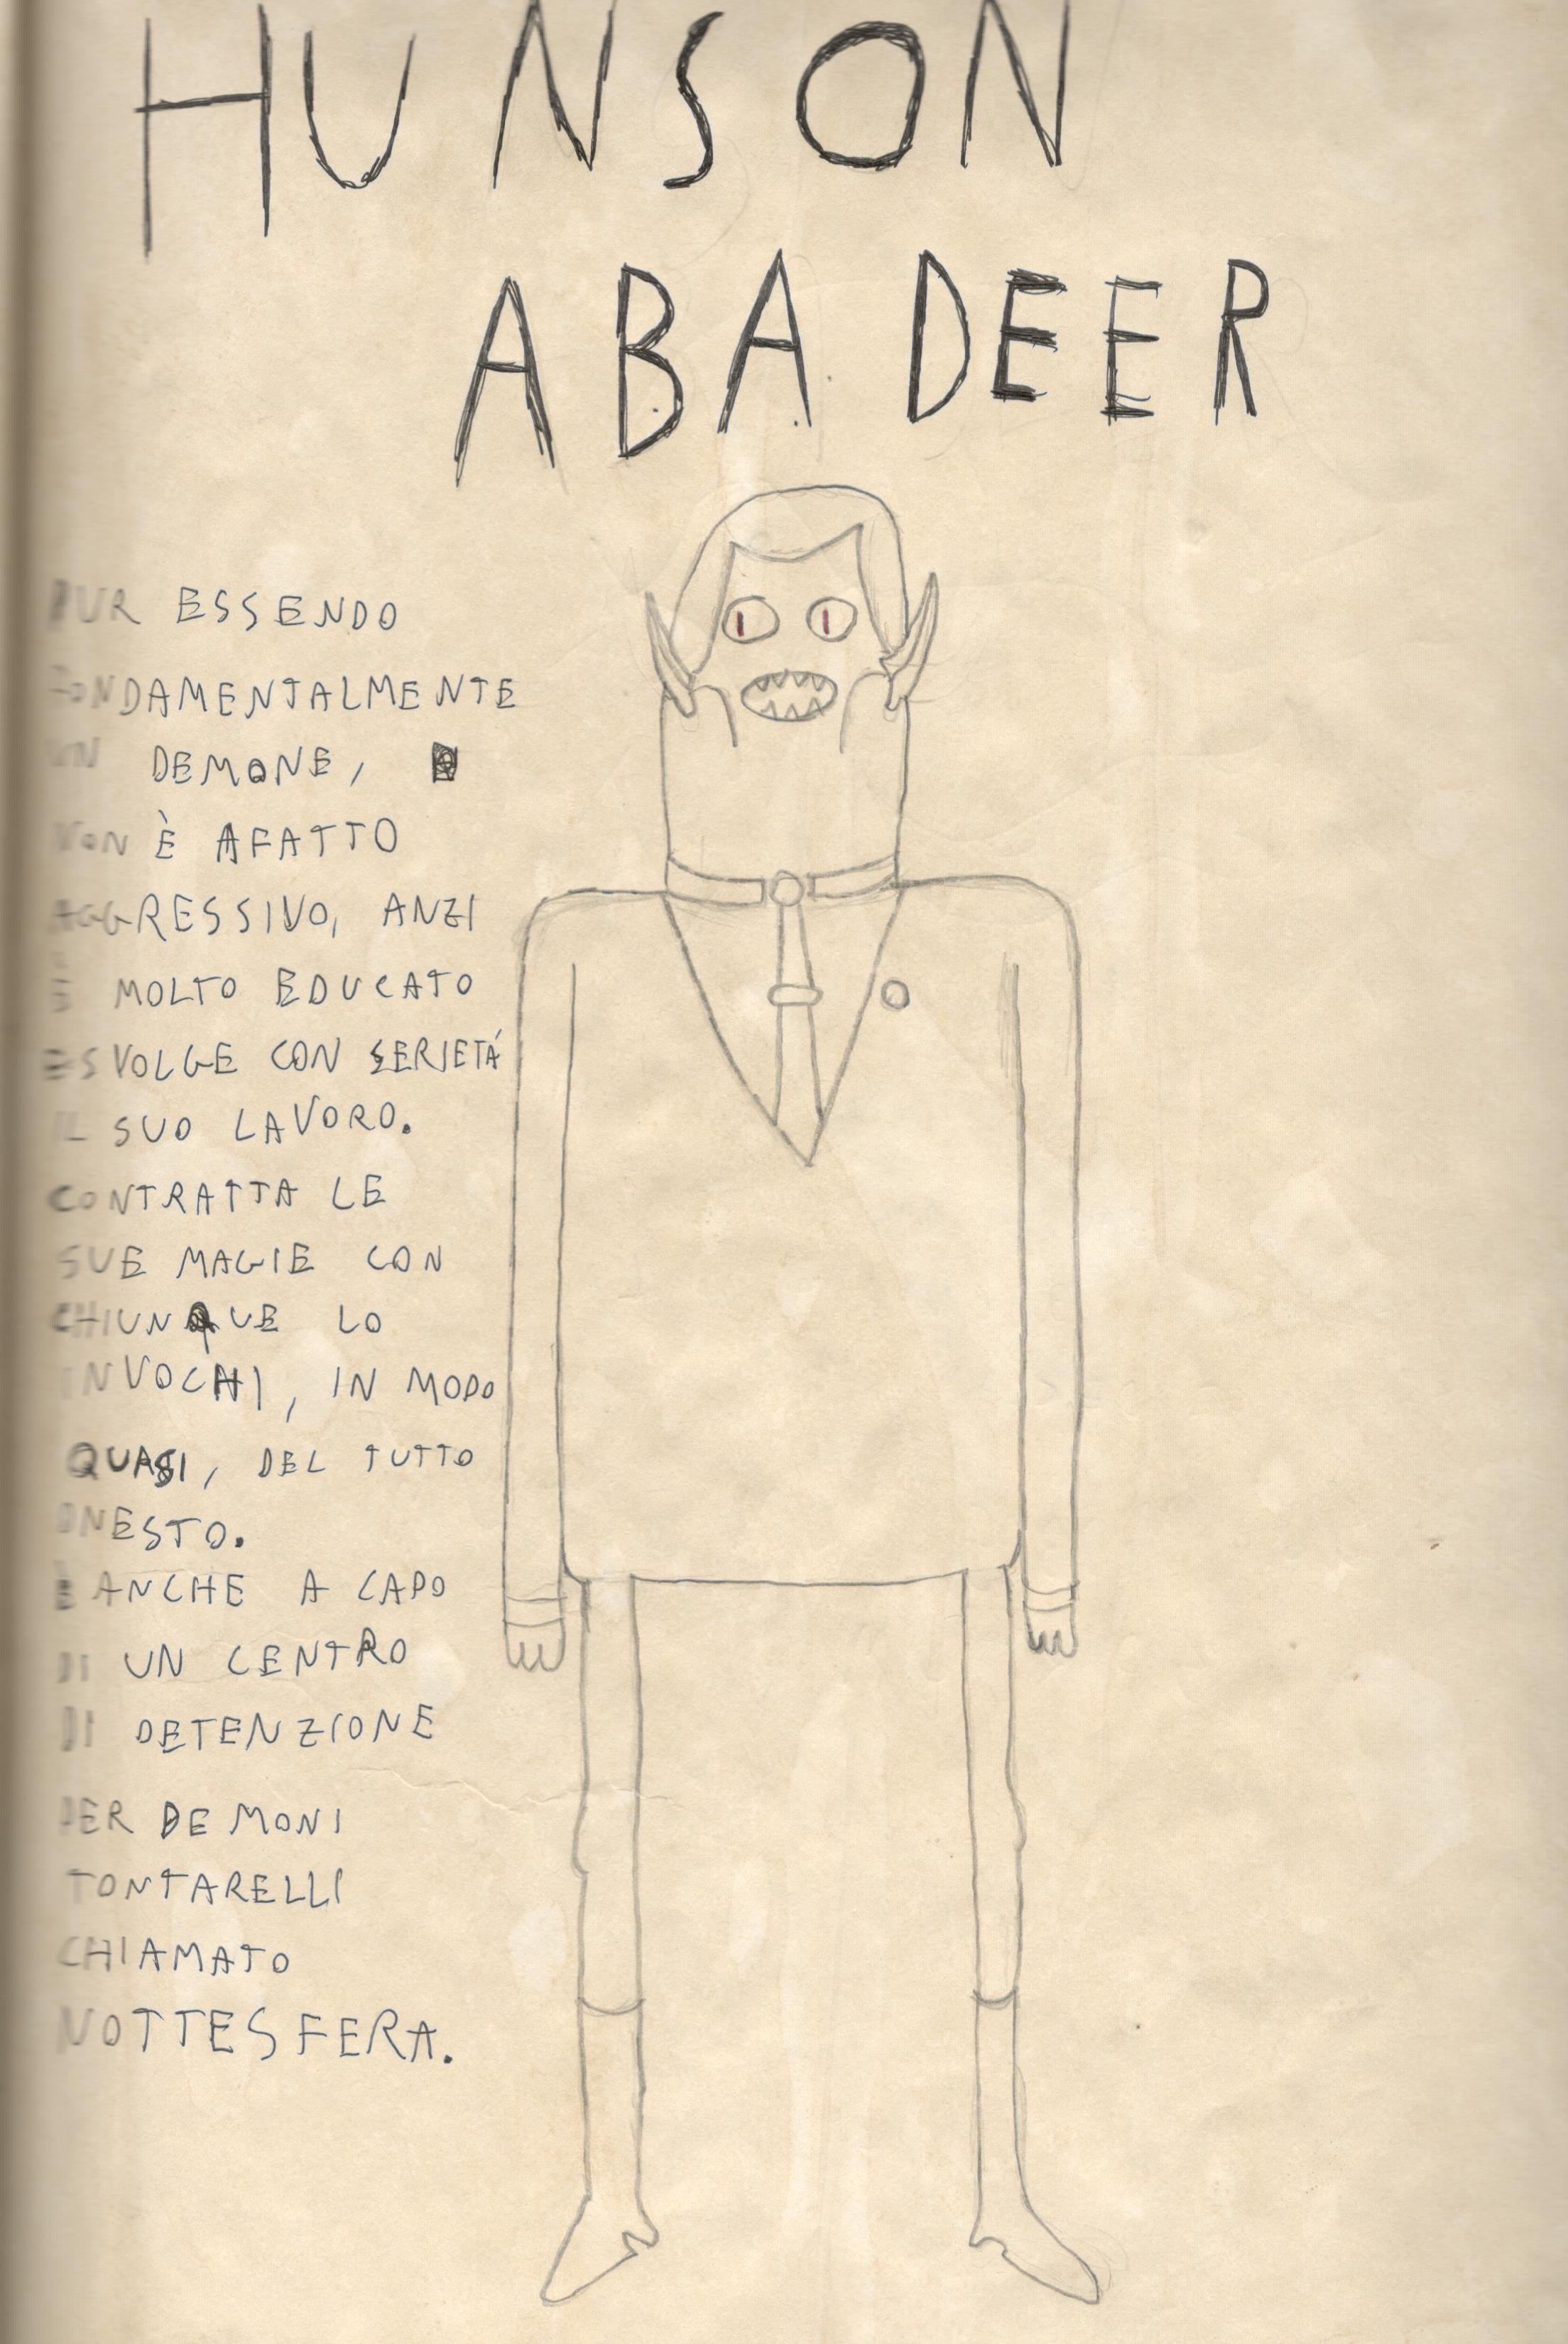 HUNSON
ABADEER
PUR ESSENDO
FONDAMENTALMENTE
UN DEMONE,
NON È AFATTO
AGGRESSIVO, ANZI
È MOLTO EDUCATO
E SVOLGE CON SERIETÁ
IL SUO LAVORO.
CONTRATTA LE
SUE MAGIE CON
CHIUNQUE LO
INVOCHI, IN MODO
QUASI, DEL TUTTO
ONESTO.
È ANCHE A CAPO
DI UN CENTRO
DI DETENZIONE
PER DEMONI
TONTARELLI
CHIAMATO
NOTTESFERA.